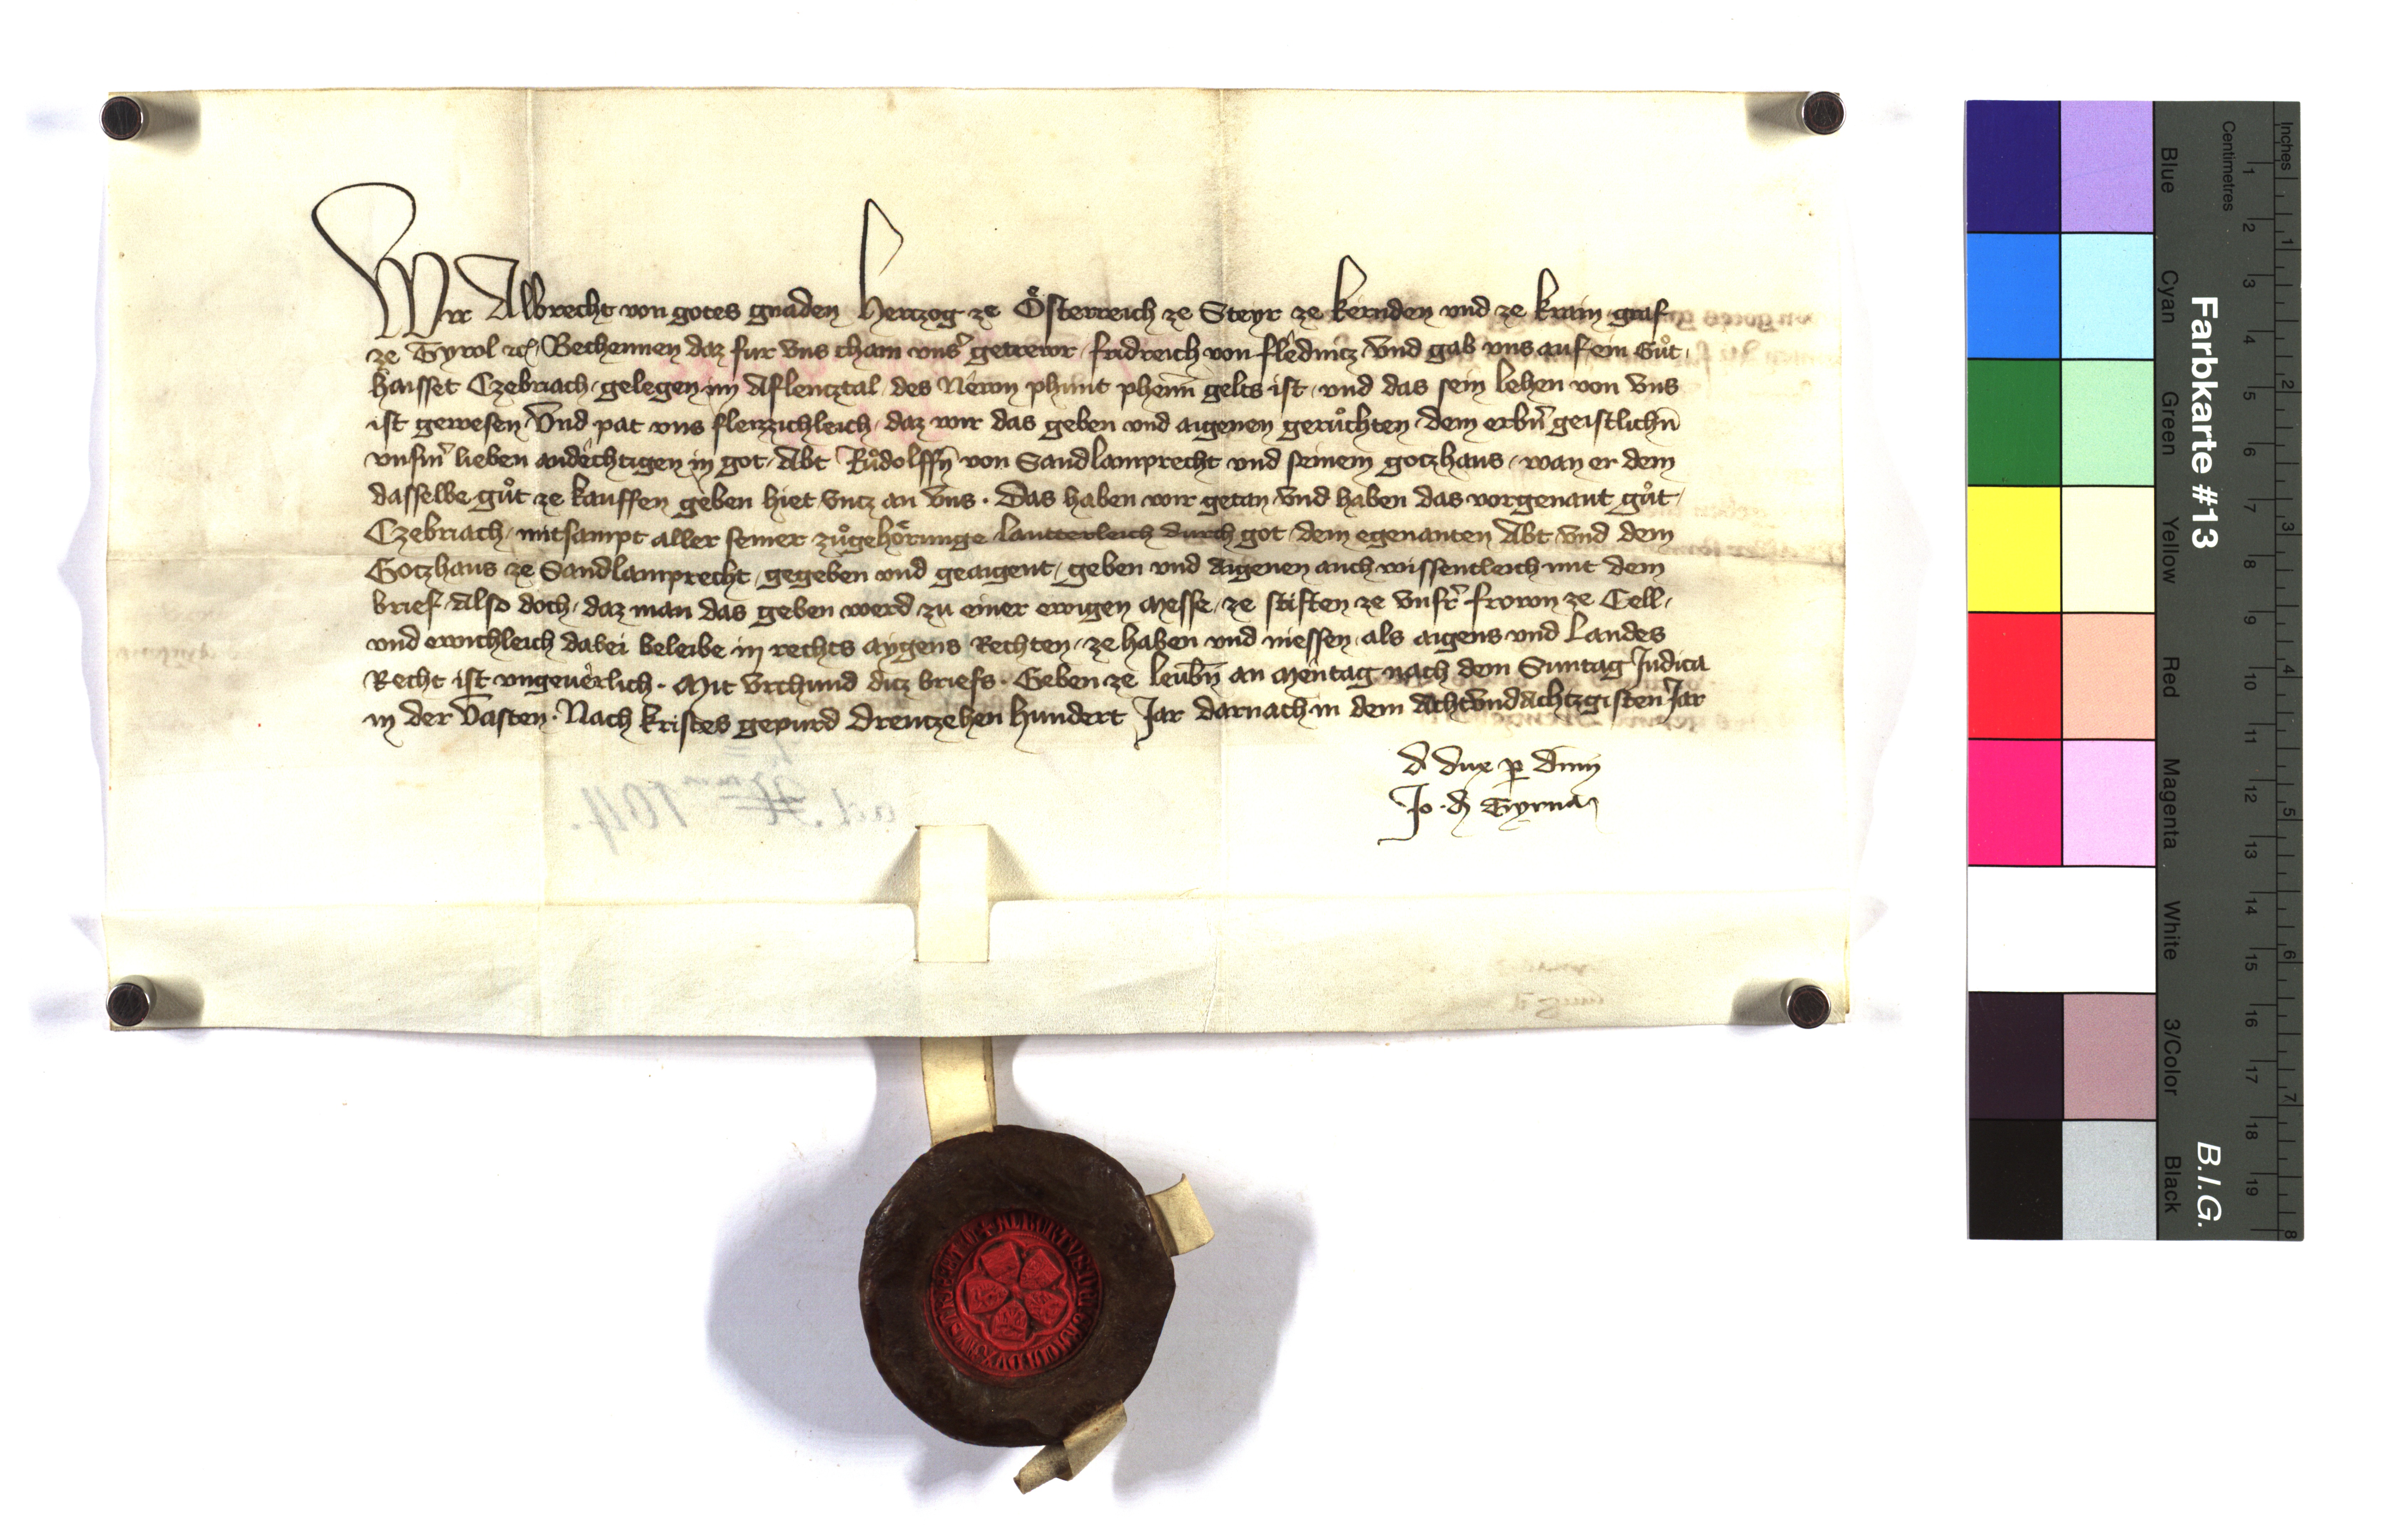 Wir Albrecht von gotes gnaden Hertzog ze Österreich ze Steyr ze kernden vnd ze krain graf
ze Tyrol etc. Bechennen daz fur vns cham vnsˀ getrewr fridreich von flednitz vnd gab vns auf ein Gůt,
haisset Czebriach, gelegen im Aflencztal, des Newn phunt phenn̄ gelts ist, vnd das sein lehen von vns
ist gewesen Vnd pat vns fleizzichleich, daz wir das geben vnd aigenen gerůchten dem erbn̄ geistlichn̄
vnsm̄ lieben andechtigen in got Abt Růdolffn̄ von Sandlamprecht vnd seinem gotzhaus, wan er dem
dasselbe gůt ze kauffen geben hiet vntz an vns. Das haben wir getan vnd haben das vorgenant gůt,
Czebriach, mitsampt aller seiner zůgehörunge lautterleich durch got dem egenanten Abt vnd dem
Gotzhaus ze Sandlamprecht, gegeben vnd geaigent, geben vnd aigenen auch wissentleich mit dem
brief Also doch, daz man das geben werd zu einer ewigen Messe, ze stiften ze vnsr̄ frown ze Cell,
vnd ewichleich dabei beleibe in rechts aygens Rechten, ze haben vnd niessen als aigens vnd Landes
Recht ist vngeuerlich. Mit vrchund ditz briefs. Geben ze leubn̄ an Mentag nach dem Suntag Judica
in der Vasten. Nach kristes gepurd Dreutzehen hundert Jar darnach in dem Achtvndachtzgisten Jar
d dux p dnm
Jo. d Tyrna
ad. 104.
+ ALBERTVS DEI GRACIA DVX AVSTRIE ET
Farbkarte #13
B.I.G.
Inches
Centimetres
Blue
Cyan
Green
Yellow
Red
Magenta
White
3/Color
Black
1
2
3
4
5
6
7
8
9
10
11
12
13
14
15
16
17
18
19
1
2
3
4
5
6
7
8